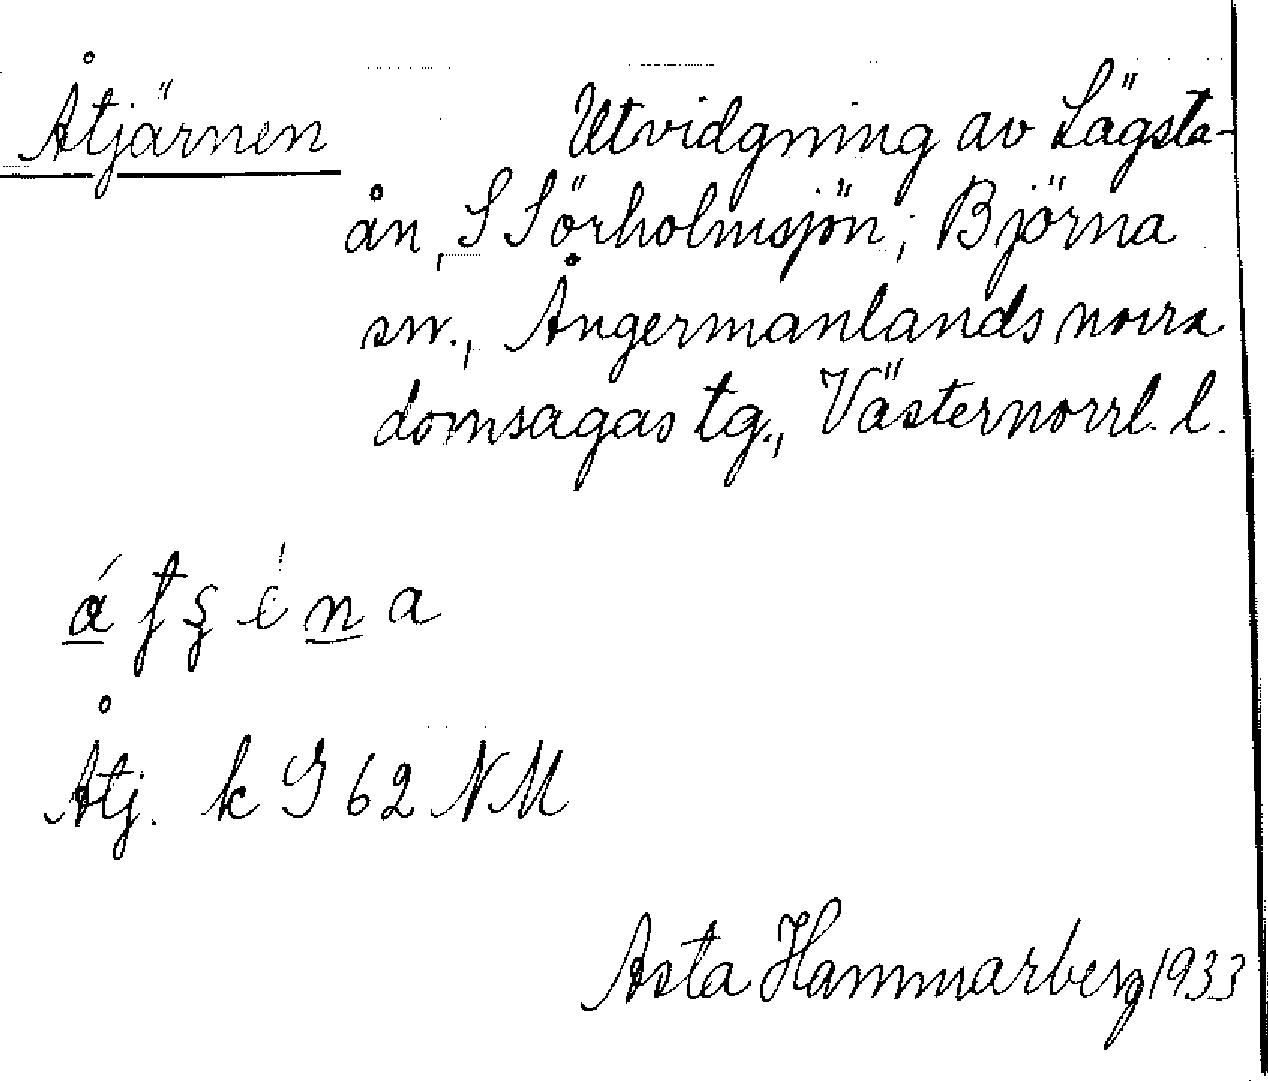 Åtjärnen Utvidgning av Lägsta-
ån, S Sörholmsjön; Björna
sn., Ångermanlands norra
domsagas tg., Västernorrl. l.
Åtj. k G 62 NM
Asta Hammarberg 1933